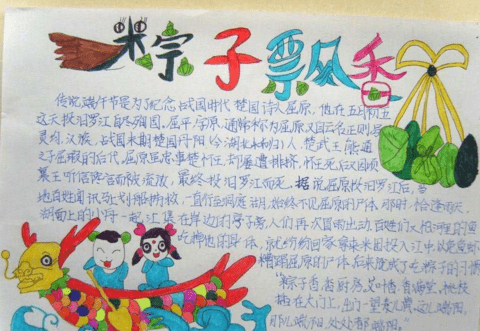 粽子飘香
传说端午节是为了纪念战国时代楚国诗人屈原,他在五月初五
这天投汨罗江自尽殉国。屈平字原,通常称为屈原又自云名正则号
灵均,汉族,战国末期楚国丹阳(今湖北秭归)人,楚武王熊通
之子屈瑕的后代。屈原虽忠事楚怀王,却屡遭排挤,怀王死后又因顷
襄王听信谗言而被流放,最终投汨罗江而死。据说屈原投汨罗江后,当
地百姓闻讯马上划船捞救,一直行至洞庭湖,始终不见屈原的尸体那时,恰逢雨天,
湖面上的小舟一起汇集在岸边的亭子旁,人们再次冒雨出动
吃掉他的身体,就纷纷回家拿来米团投入江中,以免鱼虾
糟蹋屈原的尸体,后来就成了吃粽子的习惯
粽子香,香厨房。艾叶香,香满堂。桃枝
插在大门上,出门一望麦儿黄。这儿端阳,
那儿端阳,处处都端阳。